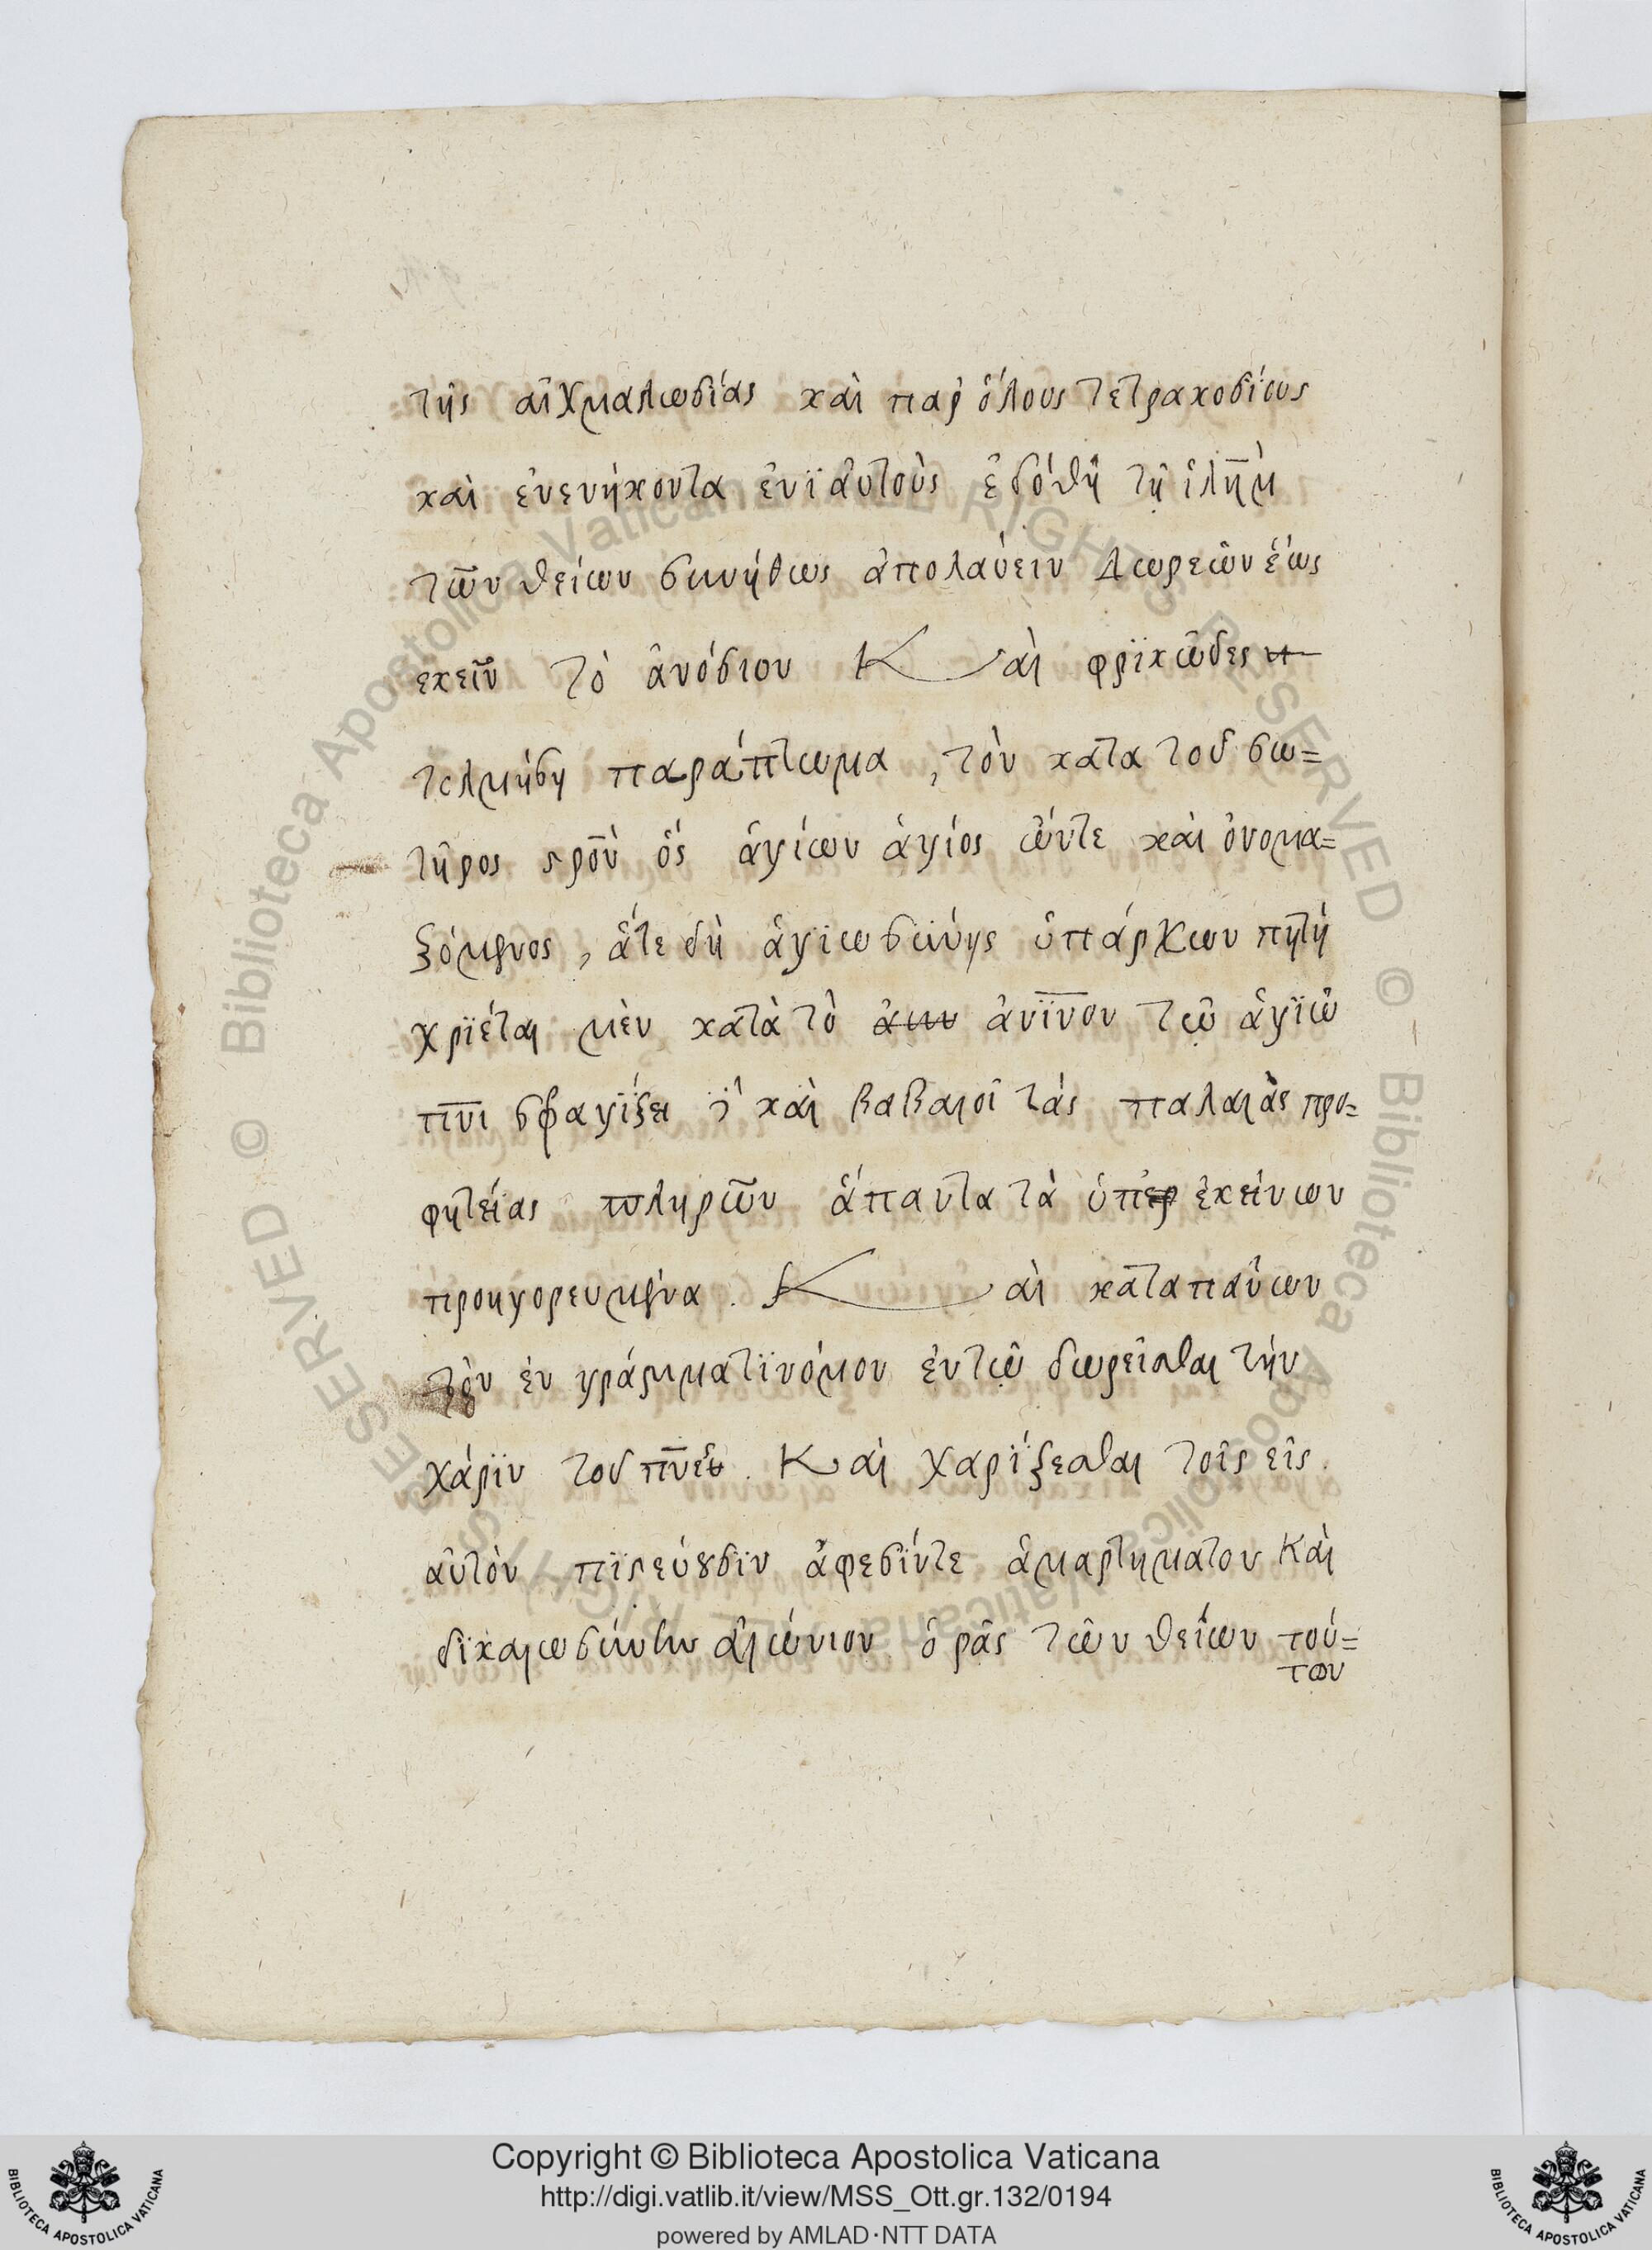 τῆς αἰχμαλωσίας καὶ παρ ὅλους τετρακοσίους
καὶ ἐνενήκοντα ἐνϊαυτοὺς ἐδόθη τῇ ἱλῆμ
τῶν θείων συνήθως ἀπολαύειν Δωρεῶν ἕως
εκεῖν τὸ ἀνόσιον Καὶ φρϊκῶδες
τολμήση παράπτωμα, τὸν κατα τοῦ σω=
τῆρος ϛροῦ ὅς ἁγίων ἁγίος ὤντε καὶ ὀνομα=
ζόμενος, ἅτε δὴ ἁγϊωσύνης ὑπάρχων πητὴ
χρϊέται μὲν κατὰ τὸ ἀνϊνον τῷ ἁγϊω
πνι σφαγϊζει καὶ βαβαιοῖ τάς παλαιὰς προ=
φητείας πληρῶν ἅπαντα τὰ ὑπερ ἐκείνων
προηγορευμένα. Καὶ καταπαύων
τὸν ἐν γράμματϊ νόμον ἐν τῷ δωρεῖσθαι τήν
χάρϊν τοῦ πνς. Καὶ χαρίζεσθαι τοῖς εἰς.
αὐτὸν πϊϛεύȣσϊν ἄφεσίντε ἁμαρτηματον Καὶ
δϊκαιωσύνην αἰώνιον ὁρᾶς τῶν θείων τού=
των
Copyright © Biblioteca Apostolica Vaticana
http://digi.vatlib.it/view/MSS_Ott.gr.132/0194
powered by AMLAD·NTT DATA